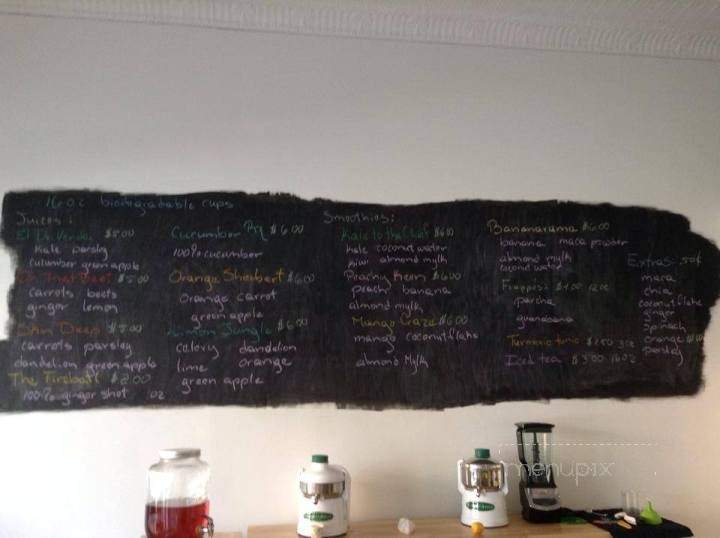 16 oz biodegradable cups
Juices:
El De Verde $5.00
Kale parsley
cucumber green apple
$5.00
carrots beets
ginger lemon
Skin Deep $5.00
carrots parsley
dandelion green apple
The Fireball $2.00
100% ginger shot oz
Cucumber $6.00
100% cucumber
Orange Sherbert $6.00
Orange carrot
green apple
Lemon Jungle $6.00
celery dandelion
lime orange
green apple
Smoothies:
Kale to the Chief $6.00
kale coconut water
kiwi almond mylk
Peachy Keen $6.00
peach banana
almond mylk
Mango Craze $6.00
mango coconut flake
almond Mylk
Bananarama $6.00
banana maca powder
almond mylk
coconut water
12 oz
parcha
guanabana
Turmeric tonic 3oz
Iced tea $3.00 16oz
Extras: .50¢
maca
chia
coconut flake
ginger
spinach
orange
parsley
menupix